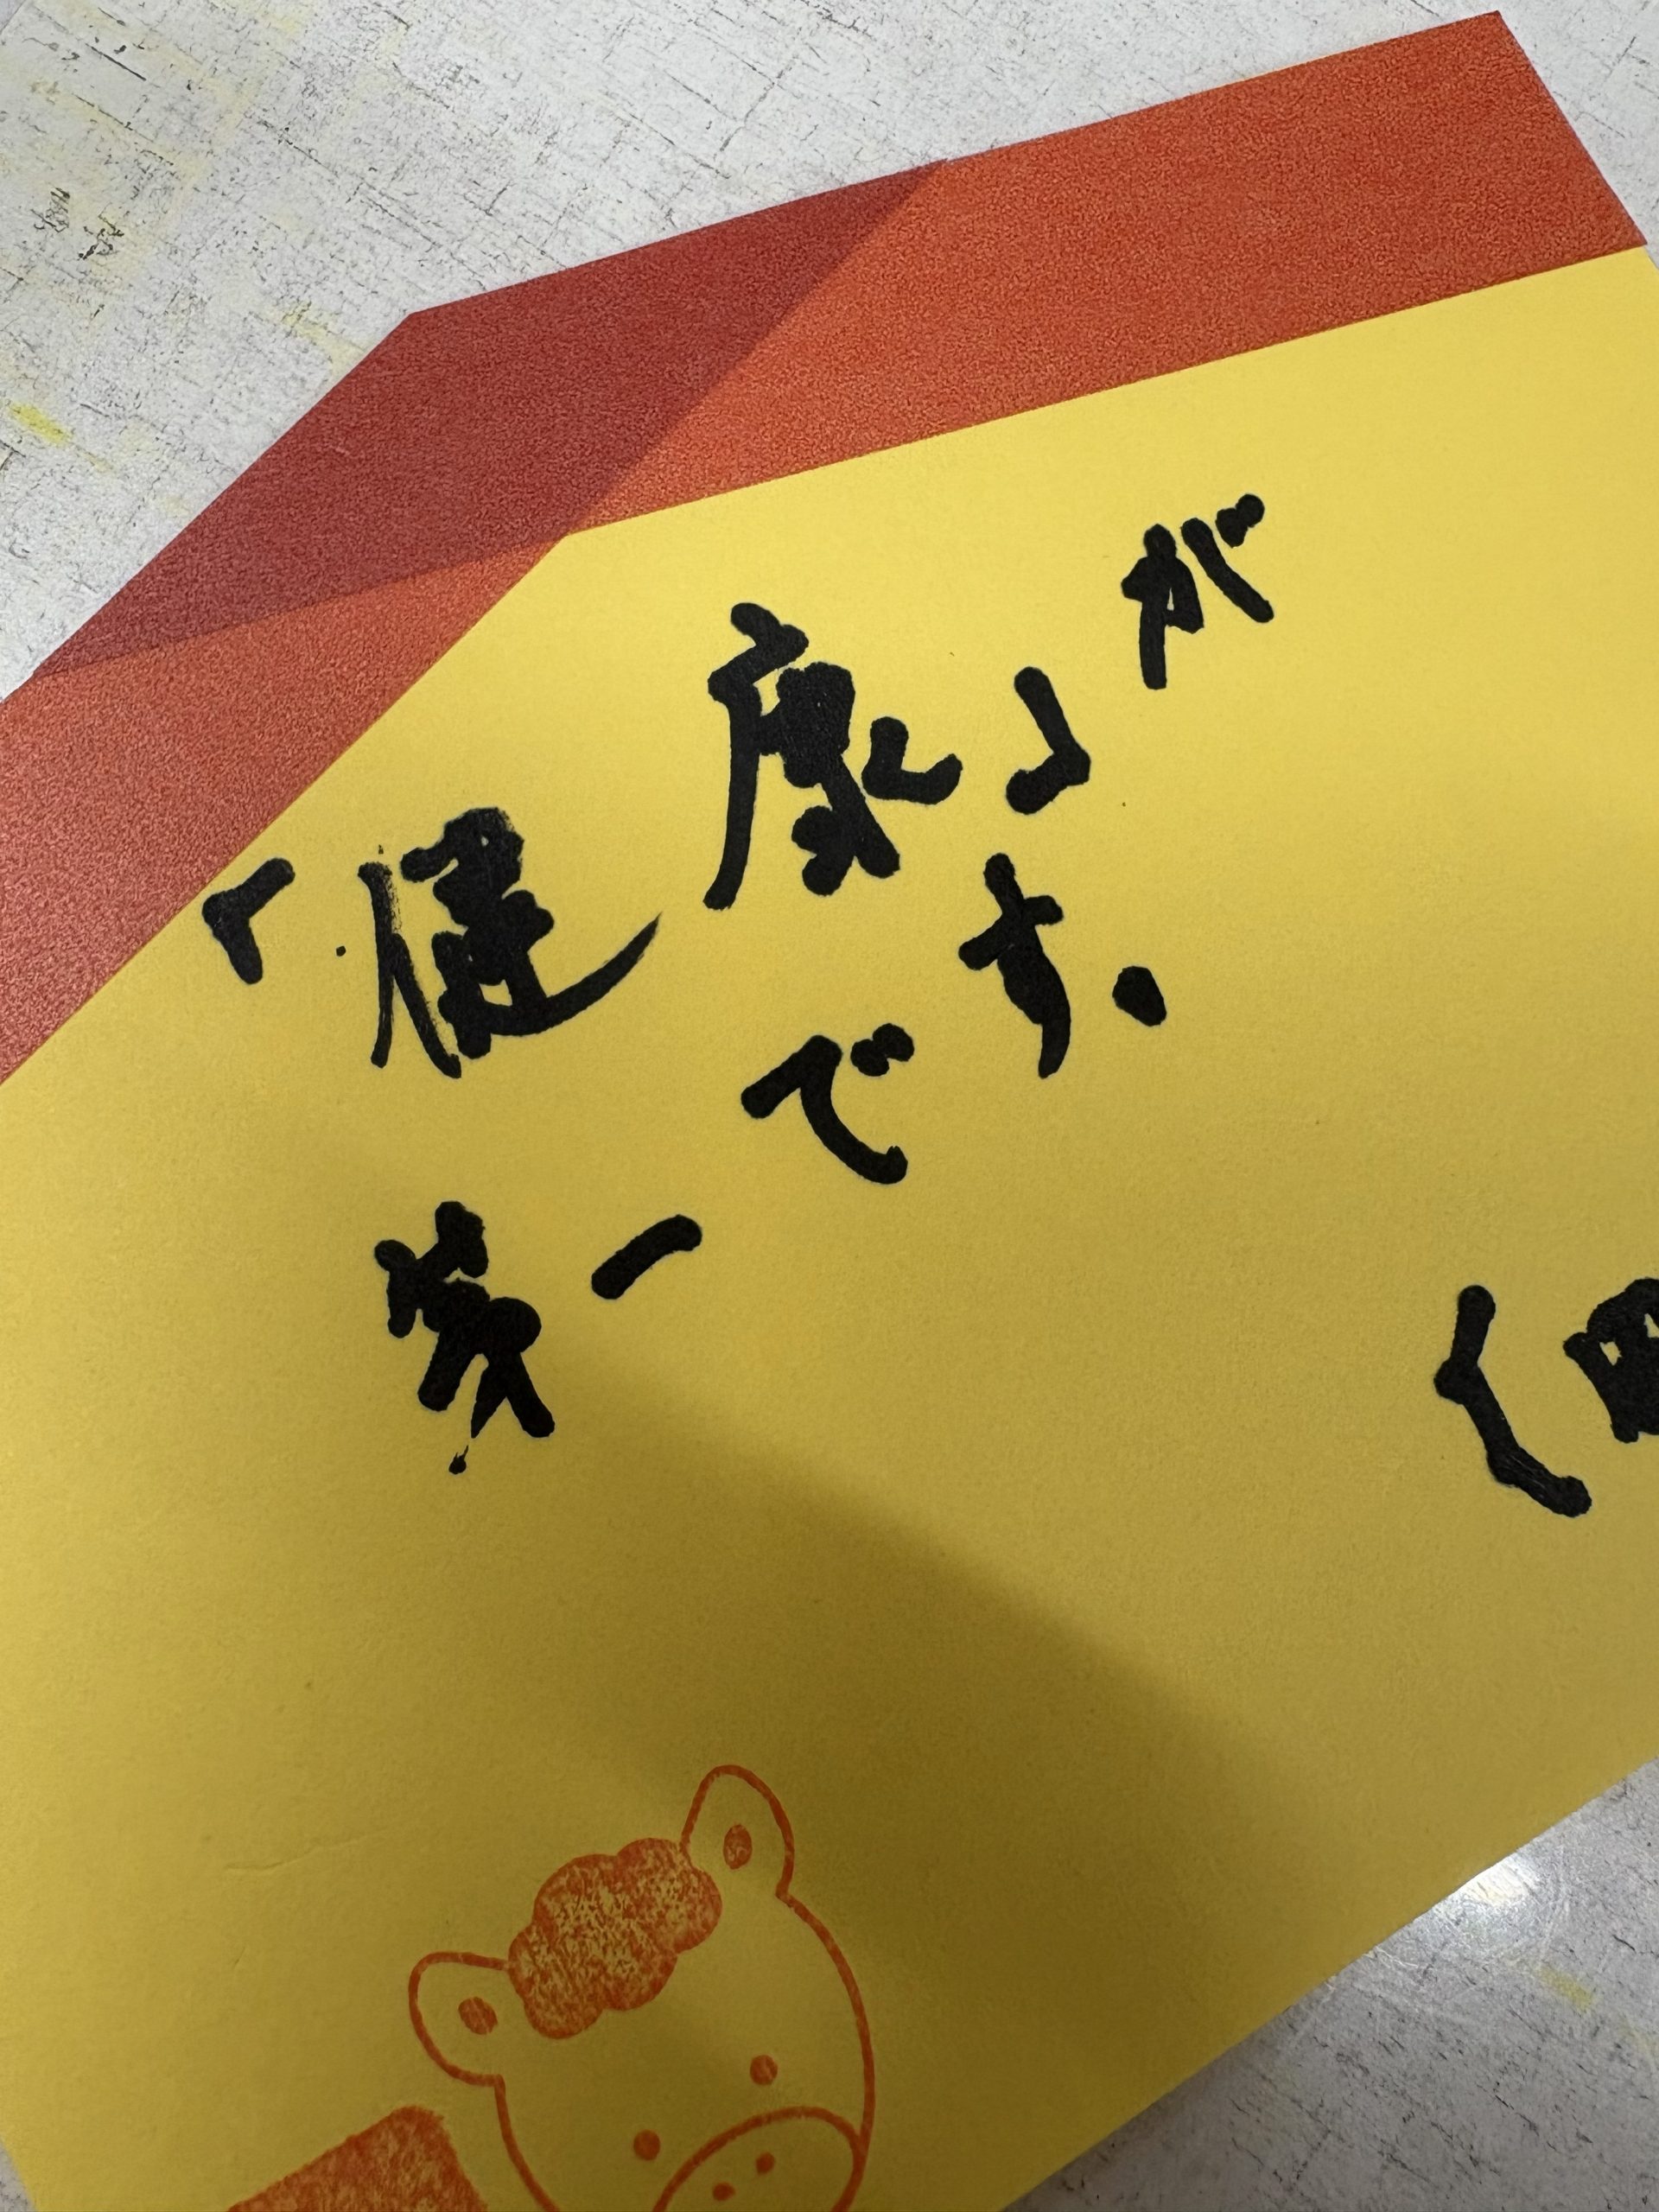 「健康」が
第一です.
(